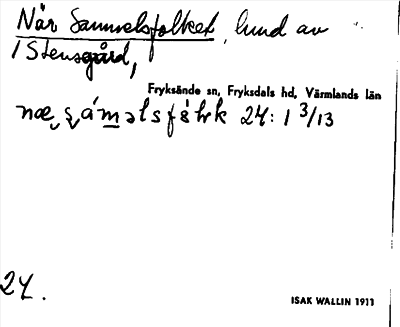 När Samuelsfolket, lund av
/ Stensgård,
Fryksände sn, Fryksdals hd, Värmlands län
24: 1 3/13
24.
ISAK WALLIN 1911